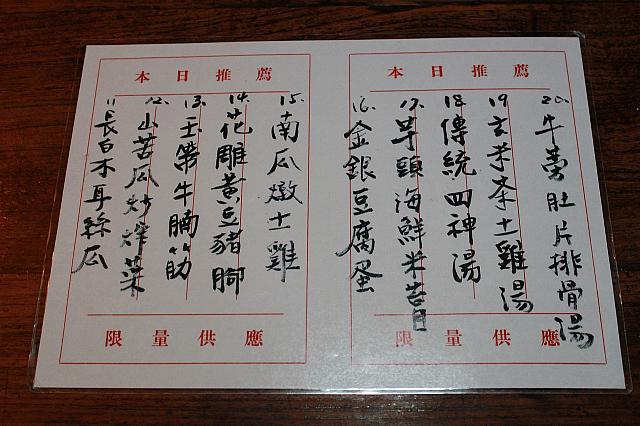 本日推薦
11.長白木耳絲瓜
12.山苦瓜炒榨菜
13.玉帶牛腩筋
14.花雕黃豆豬腳
15.南瓜燉土雞
限量供應
本日推薦
16.金銀豆腐蛋
17.芋頭海鮮米苔目
18.傳統四神湯
19.玄米茶土雞湯
20.牛蒡肚片排骨湯
限量供應